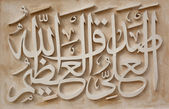 صدق الله
العلي العظيم